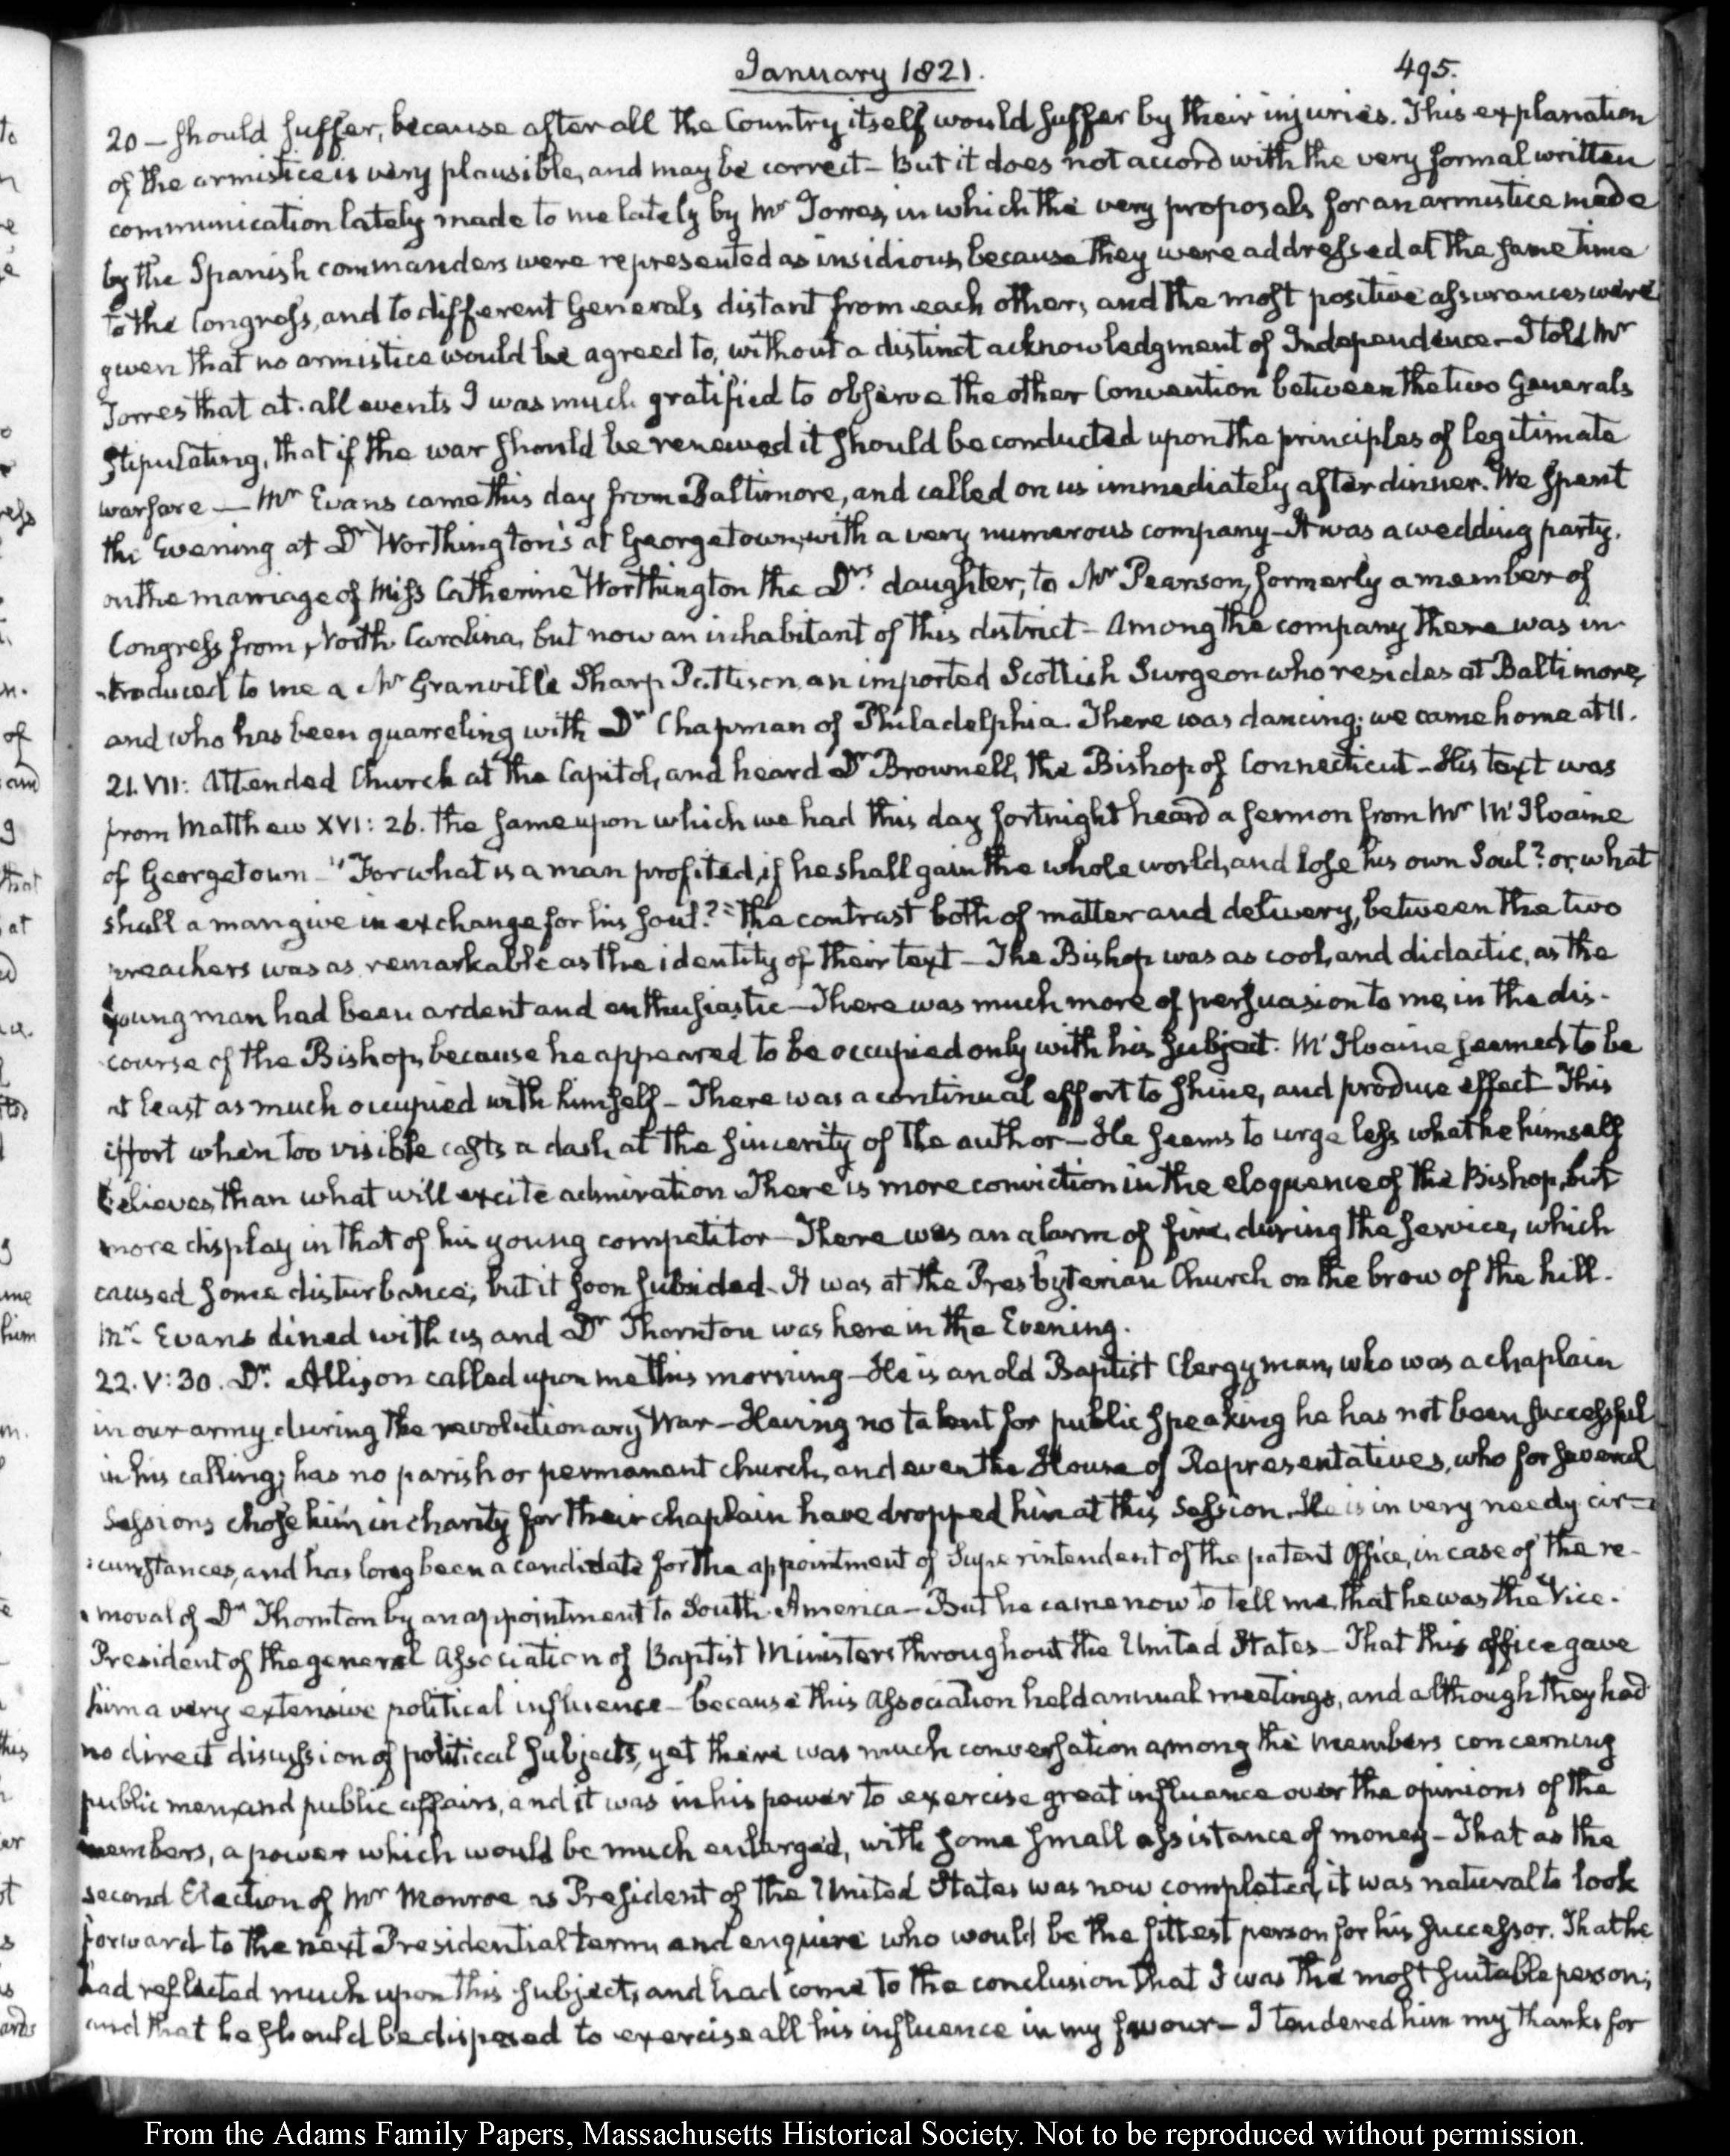 January 1821.
495.
20 – should suffer, because after all the Country itself would suffer by their injuries. This explanation
of the armistice is very plausible, and may be correct – But it does not accord with the very formal written
communication lately made to me lately by Mr Torres, in which the very proposals for an armistice made
by the Spanish commanders were represented as insidious, because they were addressed at the same time
to the Congress, and to different Generals distant from each other, and the most positive assurances were
given that no armistice would be agreed to, without a distinct acknowledgment of Independence – I told Mr
Torres that at all events I was much gratified to observe the other Convention between the two Generals
stipulating, that if the war should be renewed it should be conducted upon the principles of legitimate
warfare — Mr Evans came this day from Baltimore, and called on us immediately after dinner. We spent
the Evening at Dr Worthington's at Georgetown, with a very numerous company – It was a wedding party.
on the marriage of Miss Catherine Worthington the Drs. daughter, to Mr Pearson, formerly a member of
Congress from North Carolina, but now an inhabitant of this district – Among the company there was in-
-troduced to me a Mr Granville Sharp Pattison, an imported Scottish Surgeon who resides at Baltimore,
and who has been quarreling with Dr Chapman of Philadelphia. There was dancing; we came home at 11.
21. VII: Attended Church at the Capitol, and heard Dr Brownell, the Bishop of Connecticut – His text was
from Matthew XVI: 26. the same upon which we had this day fortnight heard a sermon from Mr McIlvaine
of Georgetown – "For what is a man profited, if he shall gain the whole world, and lose his own Soul? or, what
shall a man give in exchange for his soul?" The contrast both of matter and delivery, between the two
preachers was as remarkable as the identity of their text – The Bishop was as cool, and didactic, as the
young man had been ardent and enthusiastic – There was much more of persuasion to me, in the dis-
-course of the Bishop, because he appeared to be occupied only with his subject. McIlvaine seemed to be
at least as much occupied with himself – There was a continual effort to shine, and produce effect – This
effort when too visible casts a dash at the sincerity of the author – He seems to urge less what he himself
believes, than what will excite admiration. There is more conviction in the eloquence of the Bishop, but
more display in that of his young competitor – There was an alarm of fire, during the service, which
caused some disturbance; but it soon subsided. It was at the Presbyterian Church on the brow of the hill.
Mr. Evans dined with us, and Dr Thornton was here in the Evening.
22. V: 30. Dr. Allison called upon me this morning – He is an old Baptist Clergyman, who was a chaplain
in our army during the revolutionary War – Having no talent for public speaking he has not been successful
in his calling; has no parish or permanent church, and even the House of Representatives, who for several
Sessions chose him in charity for their chaplain have dropped him at this Session. He is in very needy cir-
-cumstances, and has long been a candidate for the appointment of Superintendent of the patent Office, in case of the re-
-moval of Dr Thornton by an appointment to South America – But he came now to tell me, that he was the Vice-
President of the general Association of Baptist Ministers throughout the United States – That this office gave
him a very extensive political influence – because this Association held annual meetings, and although they had
no direct discussion of political subjects, yet there was much conversation among the members concerning
public men, and public affairs, and it was in his power to exercise great influence over the opinions of the
members, a power which would be much enlarged, with some small assistance of money – That as the
second Election of Mr Monroe as President of the United States was now completed, it was natural to look
forward to the next Presidential term, and enquire who would be the fittest person for his successor. That he
had reflected much upon this subject, and had come to the conclusion that I was the most suitable person;
and that he should be disposed to exercise all his influence in my favour – I tendered him my thanks for
From the Adams Family Papers, Massachusetts Historical Society. Not to be reproduced without permission.